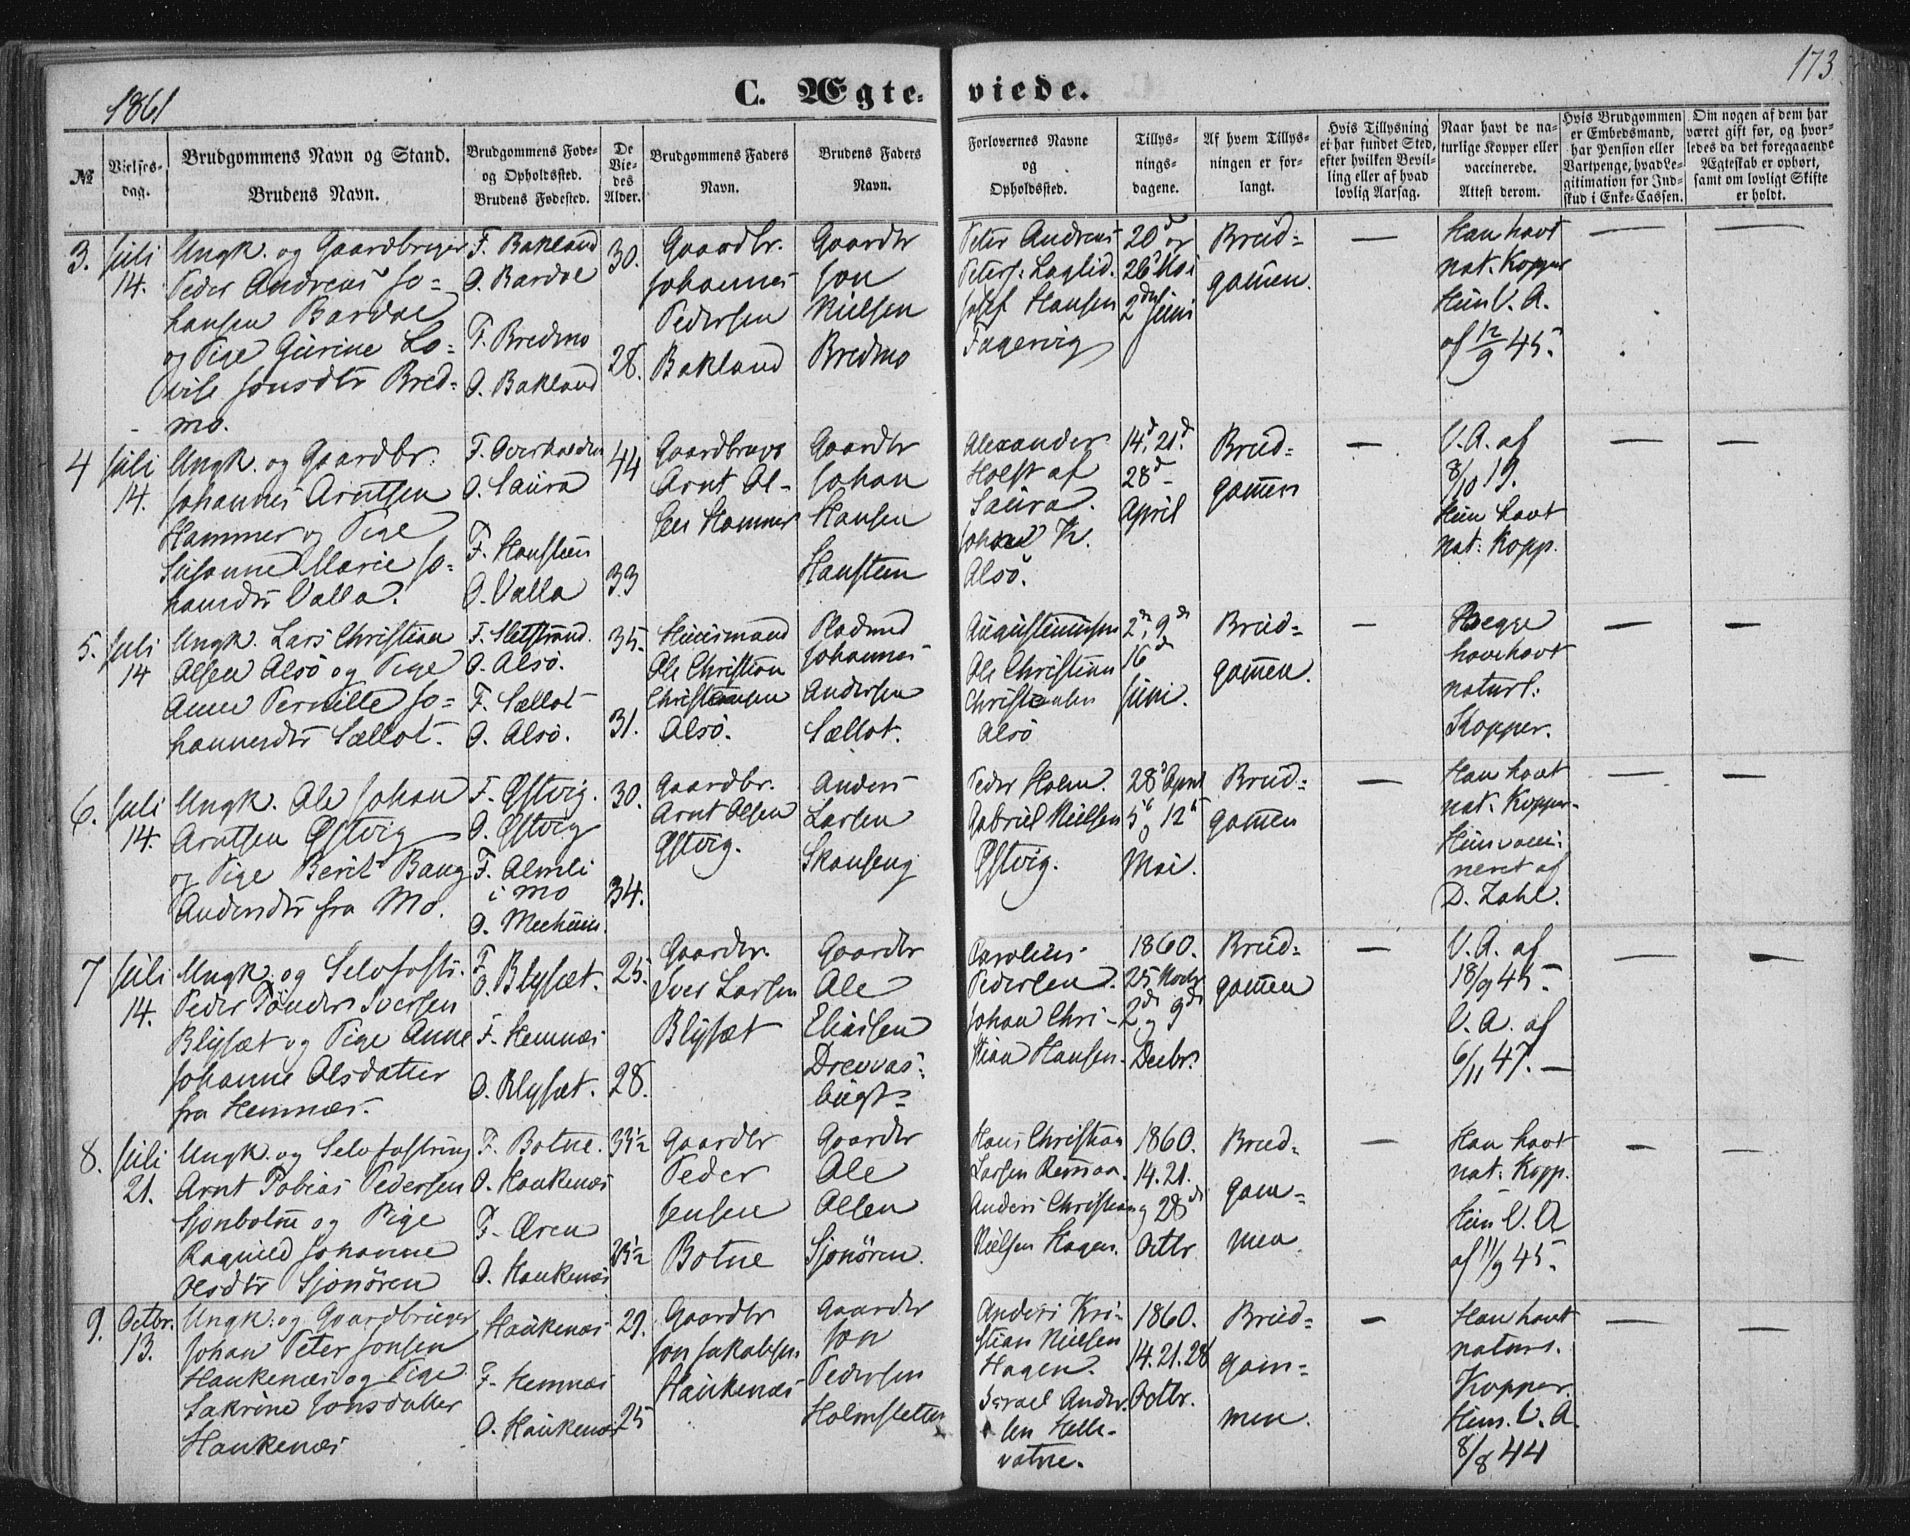 1861
C. Ægte-viede.
173
№
Vielses-
dag.
Brudgommens Navn og Stand.
Brudens Navn.
Brudgommens Føde-
og Opholdssted.
Brudens Fødested.
De
Vie-
des
Alder.
Brudgommens Faders
Navn.
Brudens Faders
Navn.
Forlovernes Navne
og
Opholdssted.
Tillys-
nings-
dagene.
Af hvem Tillys-
ningen er for-
langt.
Hvis Tillysning
ei har fundet Sted,
efter hvilken Bevil-
ling eller af hvad
lovlig Aarsag.
Naar havt de na-
turlige Kopper eller
vaccinerede.
Attest derom.
Hvis Brudgommen
er Embedsmand,
har Pension eller
Vartpenge, hvad Le-
gitimation for Ind-
skud i Enke-Cassen.
Om nogen af dem har
været gift før, og hvor-
ledes da det foregaaende
Ægteskab er ophørt,
samt om lovligt Skifte
er holdt.
3.
Juli
14.
Ungk. og Gaardbruger
Peder Andreas Jo-
hansen Bardal
og Pige Gurine Lo-
vise Jonsdtr Bred-
mo.
F. Bakland
O. Bardal
F. Bredmo
O. Bakland
30.
28.
Gaardbr.
Johannes
Pedersen
Bakland
Gaardbr
Jon
Nielsen
Bredmo
Peter Andreas
Peters. Laglid.
Josef Hansen
Fagervig
20d og
26 Mai
2den Juni
Brud-
gomen.
—
Han havt
nat. Kopper
Hun V. A.
af 12/9 45.
—
—
4
Juli
14.
Ungk. og Gaardbr.
Johannes Arntsen
Hammer og Pige
Susanne Marie Jo-
hansdtr Valla.
F. Overhalden
O. Saura
F. Haustein
O. Valla
44
33
Gaardbruger
Arnt Ol-
sen Hammer
Gaardbr
Johan
Hansen
Haustein
Alexander
Holst af
Saura.
Johan K.
Alsø.
14d, 21d
28d
April
Brud-
gomen
—
V. A. af
8/10 19.
Hun havt
nat. Kopp.
—
—
5.
Juli
14
Ungk. Lars Christian
Olsen Alsø og Pige
Anne Pernille Jo-
hannesdtr Sællot.
F. Sletstrand.
O. Alsø.
F. Sællot
O. Alsø.
35.
31.
Huusmand
Ole Christian
Christensen
Alsø.
Pladsmd
Johannes
Andersen
Sællot.
Augustinussen
Ole Christian
Christensen
Alsø
2d, 9de
16de
Juni.
Brud-
gomen.
—
Begge
have havt
naturl.
Kopper.
—
—
6.
Juli
14.
Ungk. Ole Johan
Arntsen Østvig
og Pige Berit Bang
Andersdtr fra Mo.
F. Østvig.
O. Østvig
F. Almli
i Mo
30.
34.
Gaardbr.
Arnt Olsen
Østvig.
Anders
Larsen
Skanseng
Peder Holm.
Gabriel Nielsen
Østvig.
28 April
5 og 12
Mai.
Brud-
gomen
—
Han havt
nat. Kopper.
Hun vacci-
neret af
D. Zahl.
—
—
7
Juli
14.
Ungk. og Selvfostr.
Peder Tønder Iversen
Blysæt og Pige Anne
Johanne Olsdatter
fra Hemnæs.
F.
O. Blysæt.
F. Hemnæs
O. Blysæt.
25.
28.
Gaardbr.
Iver Larsen
Blysæt
Gaardbr
Ole
Eliasen
Drevvas-
bugt
Carolius
Pedersen.
Johan Chri-
stian Hansen.
1860.
25 Novbr
2de og 9de
Decbr.
Brud-
gomen
—
V. A. af
18/9 45.
V. A. af
6/11 47.
—
—
8.
Juli
21.
Ungk. og Selvfostring
Arnt Tobias Pedersen
Sjonbotne og Pige
Ragnild Johanne
Olsdtr Sjonøren
F. Botne.
O. Haukenæs
F. Øren
O. Haukenæs
33½
23½
Gaardbr
Peder
Jensen
Botne
Gaardbr
Ole
Olsen
Sjonøren.
Hans Christian
Larsen
Anders Christian
Nielsen Hagen.
1860.
14. 21.
og 28de
Octbr.
Brud-
gom-
men.
—
Han havt
nat. Kopp.
Hun V. A
af 11/9 45.
—
—
9.
Octbr.
13.
Ungk. og Gaardbruger
Johan Peter Jonsen
Haukenæs og Pige
Sakrine Jonsdatter
Haukenæs
Haukenæs
F. Hemnæs
O. Haukenæs
29.
25
Gaardbr
Jon Jakobsen
Haukenæs
Gaardbr
Jon
Pedersen
Holmsletten
Anders Kri-
stian Nielsen
Hagen.
Israel Ander-
sen Helle-
votne.
1860.
14. 21. 28
Octbr.
Brud-
gom-
men.
—
Han havt
naturl.
Kopper.
Hun V. A.
8/8 44
—
—